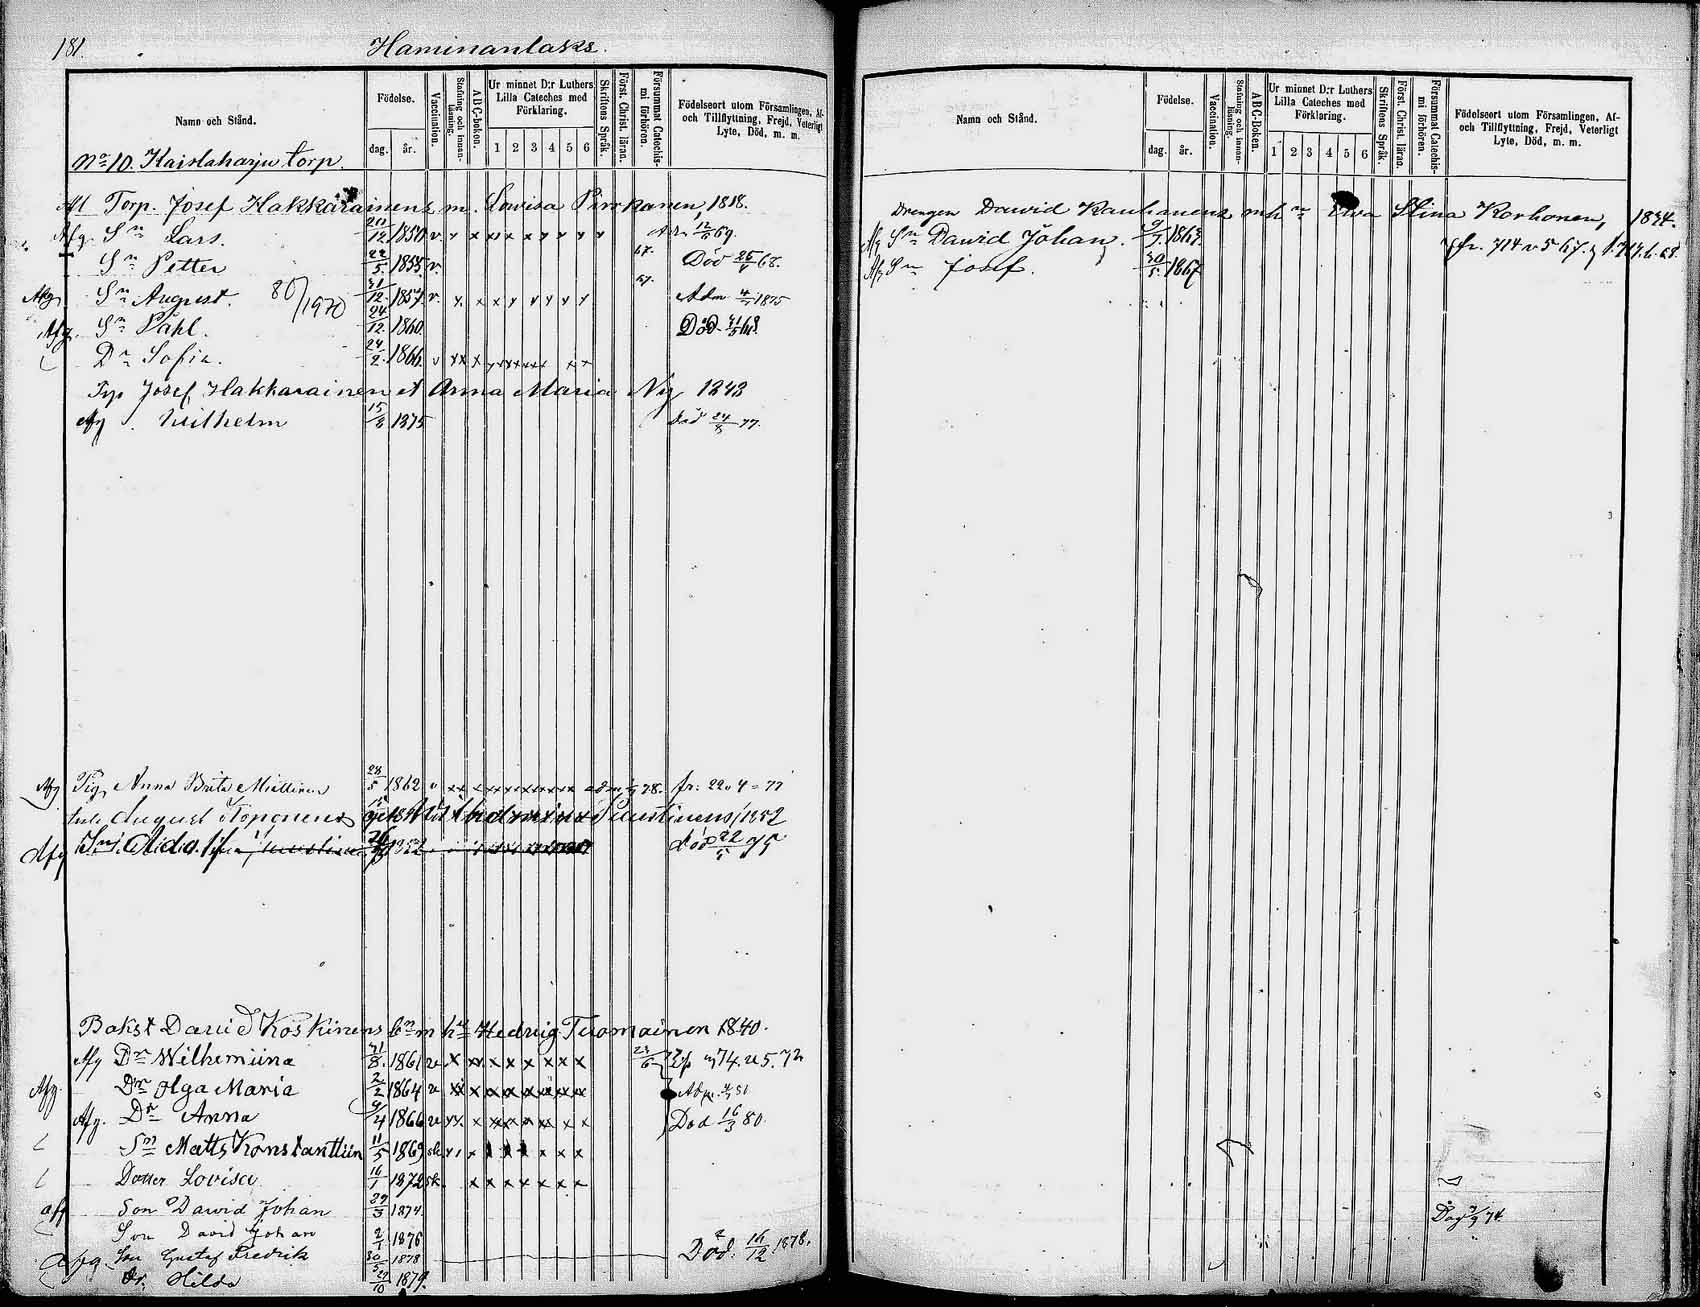 181.
Haminanlaks.
Namn och Stånd.
Födelse.
dag. år.
Vaccination.
Stafning och innan-läsning.
ABC-boken.
Ur minnet D:r Luthers Lilla Cateches med Förklaring.
1 2 3 4 5 6
Skriftens Språk.
Först. Christ. läran.
Försummat Catechis-mi förhören.
Födelseort utom Församlingen, Af- och Tillflyttning, Frejd, Veterligt Lyte, Död, m. m.
No 10. Kaislaharju torp.
Torp. Josef Hakkarainens m. Lowisa Pirskanen, 1818.
Afg. Sn Lars. 12 1850 v. x x x x x x x x x 69.
Sn Petter 22/5 1855 v. 67. Död 25/4 68.
Afg. Sn August. 80/1970 31/12 1857 v. x x x x x x x x 67. Adm 1875
Afg. Sn Påhl. 24/12 1860 Död 68.
Dr Sofia. 24/2 1866 v xx x x x x x x x x
Josef Hakkarainen Anna Maria 1843
Afg. Wilhelm 15/8 1875 Död 24/5 77.
Afg Pig. Anna Brita Miettinen 28/5 1862 v xx x x x x x x x x 78. fr. 22 77
August Toponens 1852
Afg Sn Adolf 26 1852 död 22/5 75
David Koskinens m Hedvig Tuomainen 1840.
Afg Dr Wilhemiina 31/8 1861 v x xx x x x x x x 23/6 74 5. 72
Afg. Dr Olga Maria 2/2 1864 v xx x x x x x x x 81
Afg. Dr Anna 9/4 1866 v xx. x xx x x x x x Död 16/3 80.
Sn Matts Konstantiin 11/5 1869 sk x x x x x x
Dotter Lovisa 16/1 1872 sk. x x x x x x x
aff Son David Johan 29/3 1874.
Son David Johan 2/1 1876
afg Son Gustaf Fredrik 30/5 1878 Död. 16/12 1878.
Dr. Hilda 29/10 1879.
Namn och Stånd.
Födelse.
dag. år.
Vaccination.
Stafning och innan-läsning.
ABC-boken.
Ur minnet D:r Luthers Lilla Cateches med Förklaring.
1 2 3 4 5 6
Skriftens Språk.
Först. Christ. läran.
Försummat Catechis-mi förhören.
Födelseort utom Församlingen, Af- och Tillflyttning, Frejd, Veterligt Lyte, Död, m. m.
Drengen Dawid Kauhanens Ewa Stina Korhonen, 1834.
Afg Sn Dawid Johan. 1863 fr. 714 v 5 67.
Afg Sn Josef. 30/5 1867